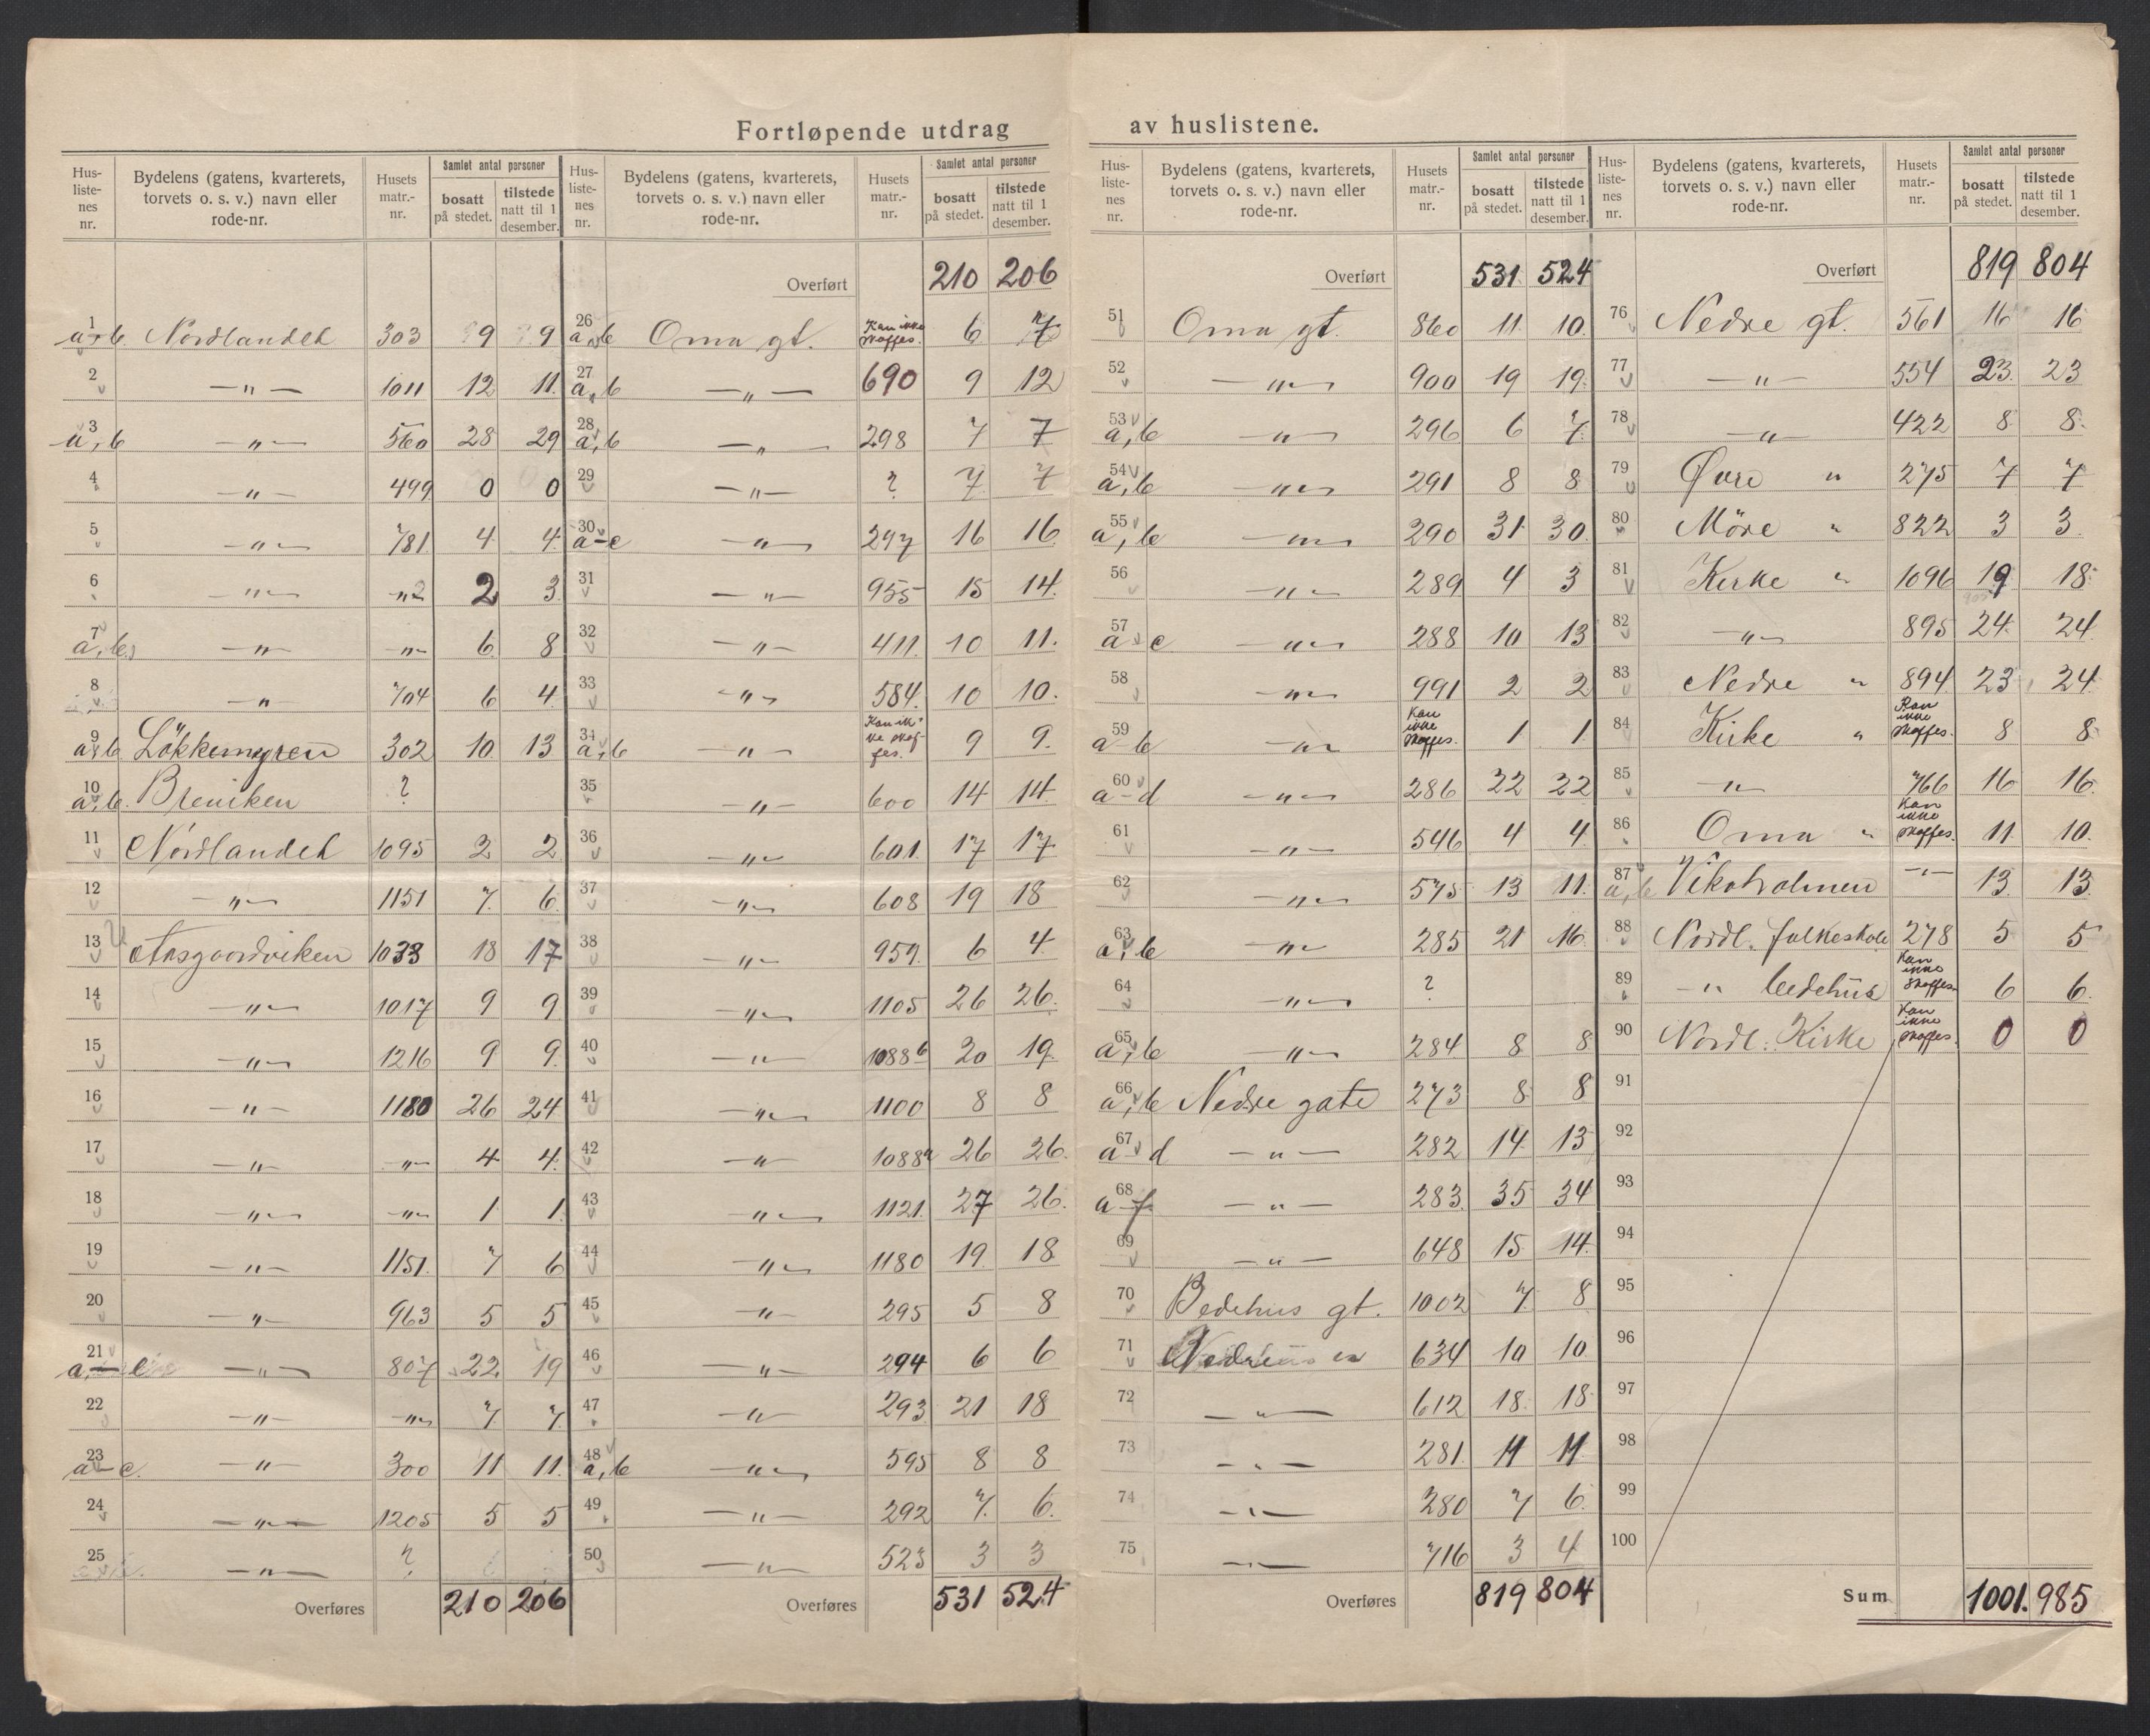 Fortløpende utdrag av huslistene.
Hus-liste-nes nr. | Bydelens (gatens, kvarterets, torvets o. s. v.) navn eller rode-nr. | Husets matr.-nr. | Samlet antal personer bosatt på stedet. | tilstede natt til 1 desember.
1 a+b Nordlandet 303 9 9
2 —"— 1011 12 11.
3 a,b —"— 560 28 29
4 —"— 499 0 0
5 —"— 781 4 4.
6 —"— —"— 2 3.
7 a,b —"— —"— 6 8
8 —"— 704 6 4
9 a,b 302 10 13
10 a,b ?
11 Nordlandet 1095 2 2
12 —"— 1151 7. 6.
13 1033 18 17
14 —"— 1017 9 9
15 —"— 1216 9 9.
16 —"— 1180 26 24
17 —"— —"— 4 4.
18 —"— —"— 1 1
19 —"— 1151. 7 6
20 —"— 963 5 5
21 a — —"— 807 22 19
22 —"— —"— 7. 7.
23 a-c. —"— 300 11 11.
24 —"— 1205 5 5
25 —"— ?
Overføres 210 206
Hus-liste-nes nr. | Bydelens (gatens, kvarterets, torvets o. s. v.) navn eller rode-nr. | Husets matr.-nr. | Samlet antal personer bosatt på stedet. | tilstede natt til 1 desember.
Overført 210 206
26 a,b Oma gt. Kan ikke skaffes. 6 7
27 a,b —"— 690 9 12
28 a,b —"— 298 7 7
29 —"— ? 7 7
30 a-c —"— 297 16 16
31 —"— 955 15 14.
32 —"— 411. 10 11.
33 —"— 584. 10 10.
34 a,b —"— Kan ikke skaffes. 9 9.
35 —"— 600 14 14
36 —"— 601. 17 17
37 —"— 608 19 18
38 —"— 959. 6 4.
39 —"— 1105 26 26.
40 —"— 1088b 20 19.
41 —"— 1100 8 8
42 —"— 1088a 26 26.
43 —"— 1121. 27 26.
44 —"— 1180 19 18
45 —"— 295 5 8
46 —"— 294 6 6
47 —"— 293 21 18
48 a,b —"— 595 8 8
49 —"— 292 7. 6.
50 —"— 523 3 3
Overføres 531 524
Hus-liste-nes nr. | Bydelens (gatens, kvarterets, torvets o. s. v.) navn eller rode-nr. | Husets matr.-nr. | Samlet antal personer bosatt på stedet. | tilstede natt til 1 desember.
Overført 531 524
51 Oma gt. 860 11. 10.
52 —"— 900 19 19.
53 a,b —"— 296 6 7.
54 a,b —"— 291 8 8
55 a,b —"— 290 31 30.
56 —"— 289 4 3
57 a-c —"— 288 10 13
58 —"— 991 2 2
59 a-b —"— Kan ikke skaffes. 1 1
60 a-d —"— 286 22 22
61 —"— 546 4 4.
62 —"— 575 13 11.
63 a,b —"— 285 21 16
64 —"— ?
65 a,b —"— 284 8 8
66 a,b Nedre gate 273 8 8
67 a-d —"— 282 14. 13
68 a-f —"— 283. 35 34
69 —"— 648 15 14.
70 Bedehus gt. 1002 7. 8
71 634 10 10
72 —"— 612 18. 18.
73 —"— 281. 11 11.
74 —"— 280 7 6.
75 —"— 716 3 4
Overføres 819 804
Hus-liste-nes nr. | Bydelens (gatens, kvarterets, torvets o. s. v.) navn eller rode-nr. | Husets matr.-nr. | Samlet antal personer bosatt på stedet. | tilstede natt til 1 desember.
Overført 819 804
76 Nedre gt. 561 16 16
77 —"— 554 23. 23
78 —"— 422 8. 8.
79 Øvre " 275 7 7
80 Möre " 822 3 3.
81 Kirke " 1096 19 18.
82 —"— 895 24. 24
83 Nedre " 894 23 24
84 Kirke " Kan ikke skaffes. 8 8.
85 —"— 766 16 16.
86 Oma " Kan ikke skaffes. 11. 10.
87 a,b Vikoholmen —"— 13. 13.
88 Nordl. folkeskole 278 5 5
89 —"— bedehus Kan ikke skaffes. 6 6.
90 Nordl. Kirke Kan ikke skaffes. 0 0
91
92
93
94
95
96
97
98
99
100
Sum 1001. 985